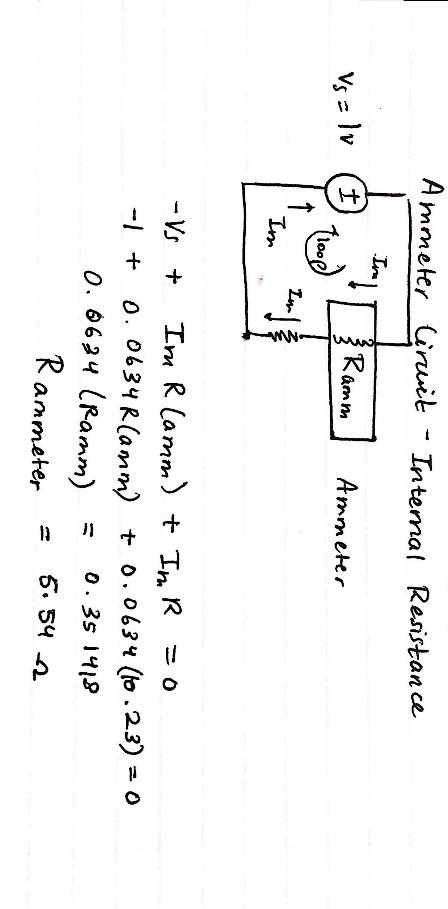 Ammeter Circuit - Internal Resistance
Vs = 1v
Im
loop
Im
Im
Ramm
Ammeter
-Vs + Im R(amm) + Im R = 0
-1 + 0.0634R(amm) + 0.0634(10.23) = 0
0.0634 (Ramm) = 0.351418
Rammeter = 5.54 Ω